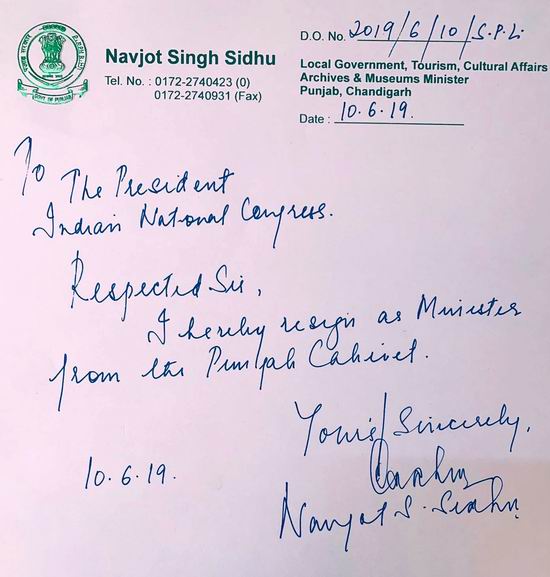 Navjot Singh Sidhu
Tel. No. : 0172-2740423 (0)
0172-2740931 (Fax)
D.O. No. 2019/6/10/S.P.L.
Local Government, Tourism, Cultural Affairs
Archives & Museums Minister
Punjab, Chandigarh
Date : 10.6.19.
GOVT. OF PUNJAB
To
The President
Indian National Congress.
Respected Sir,
I hereby resign as Minister
from the Punjab Cabinet.
Yours Sincerely,
10.6.19.
Navjot S. Sidhu